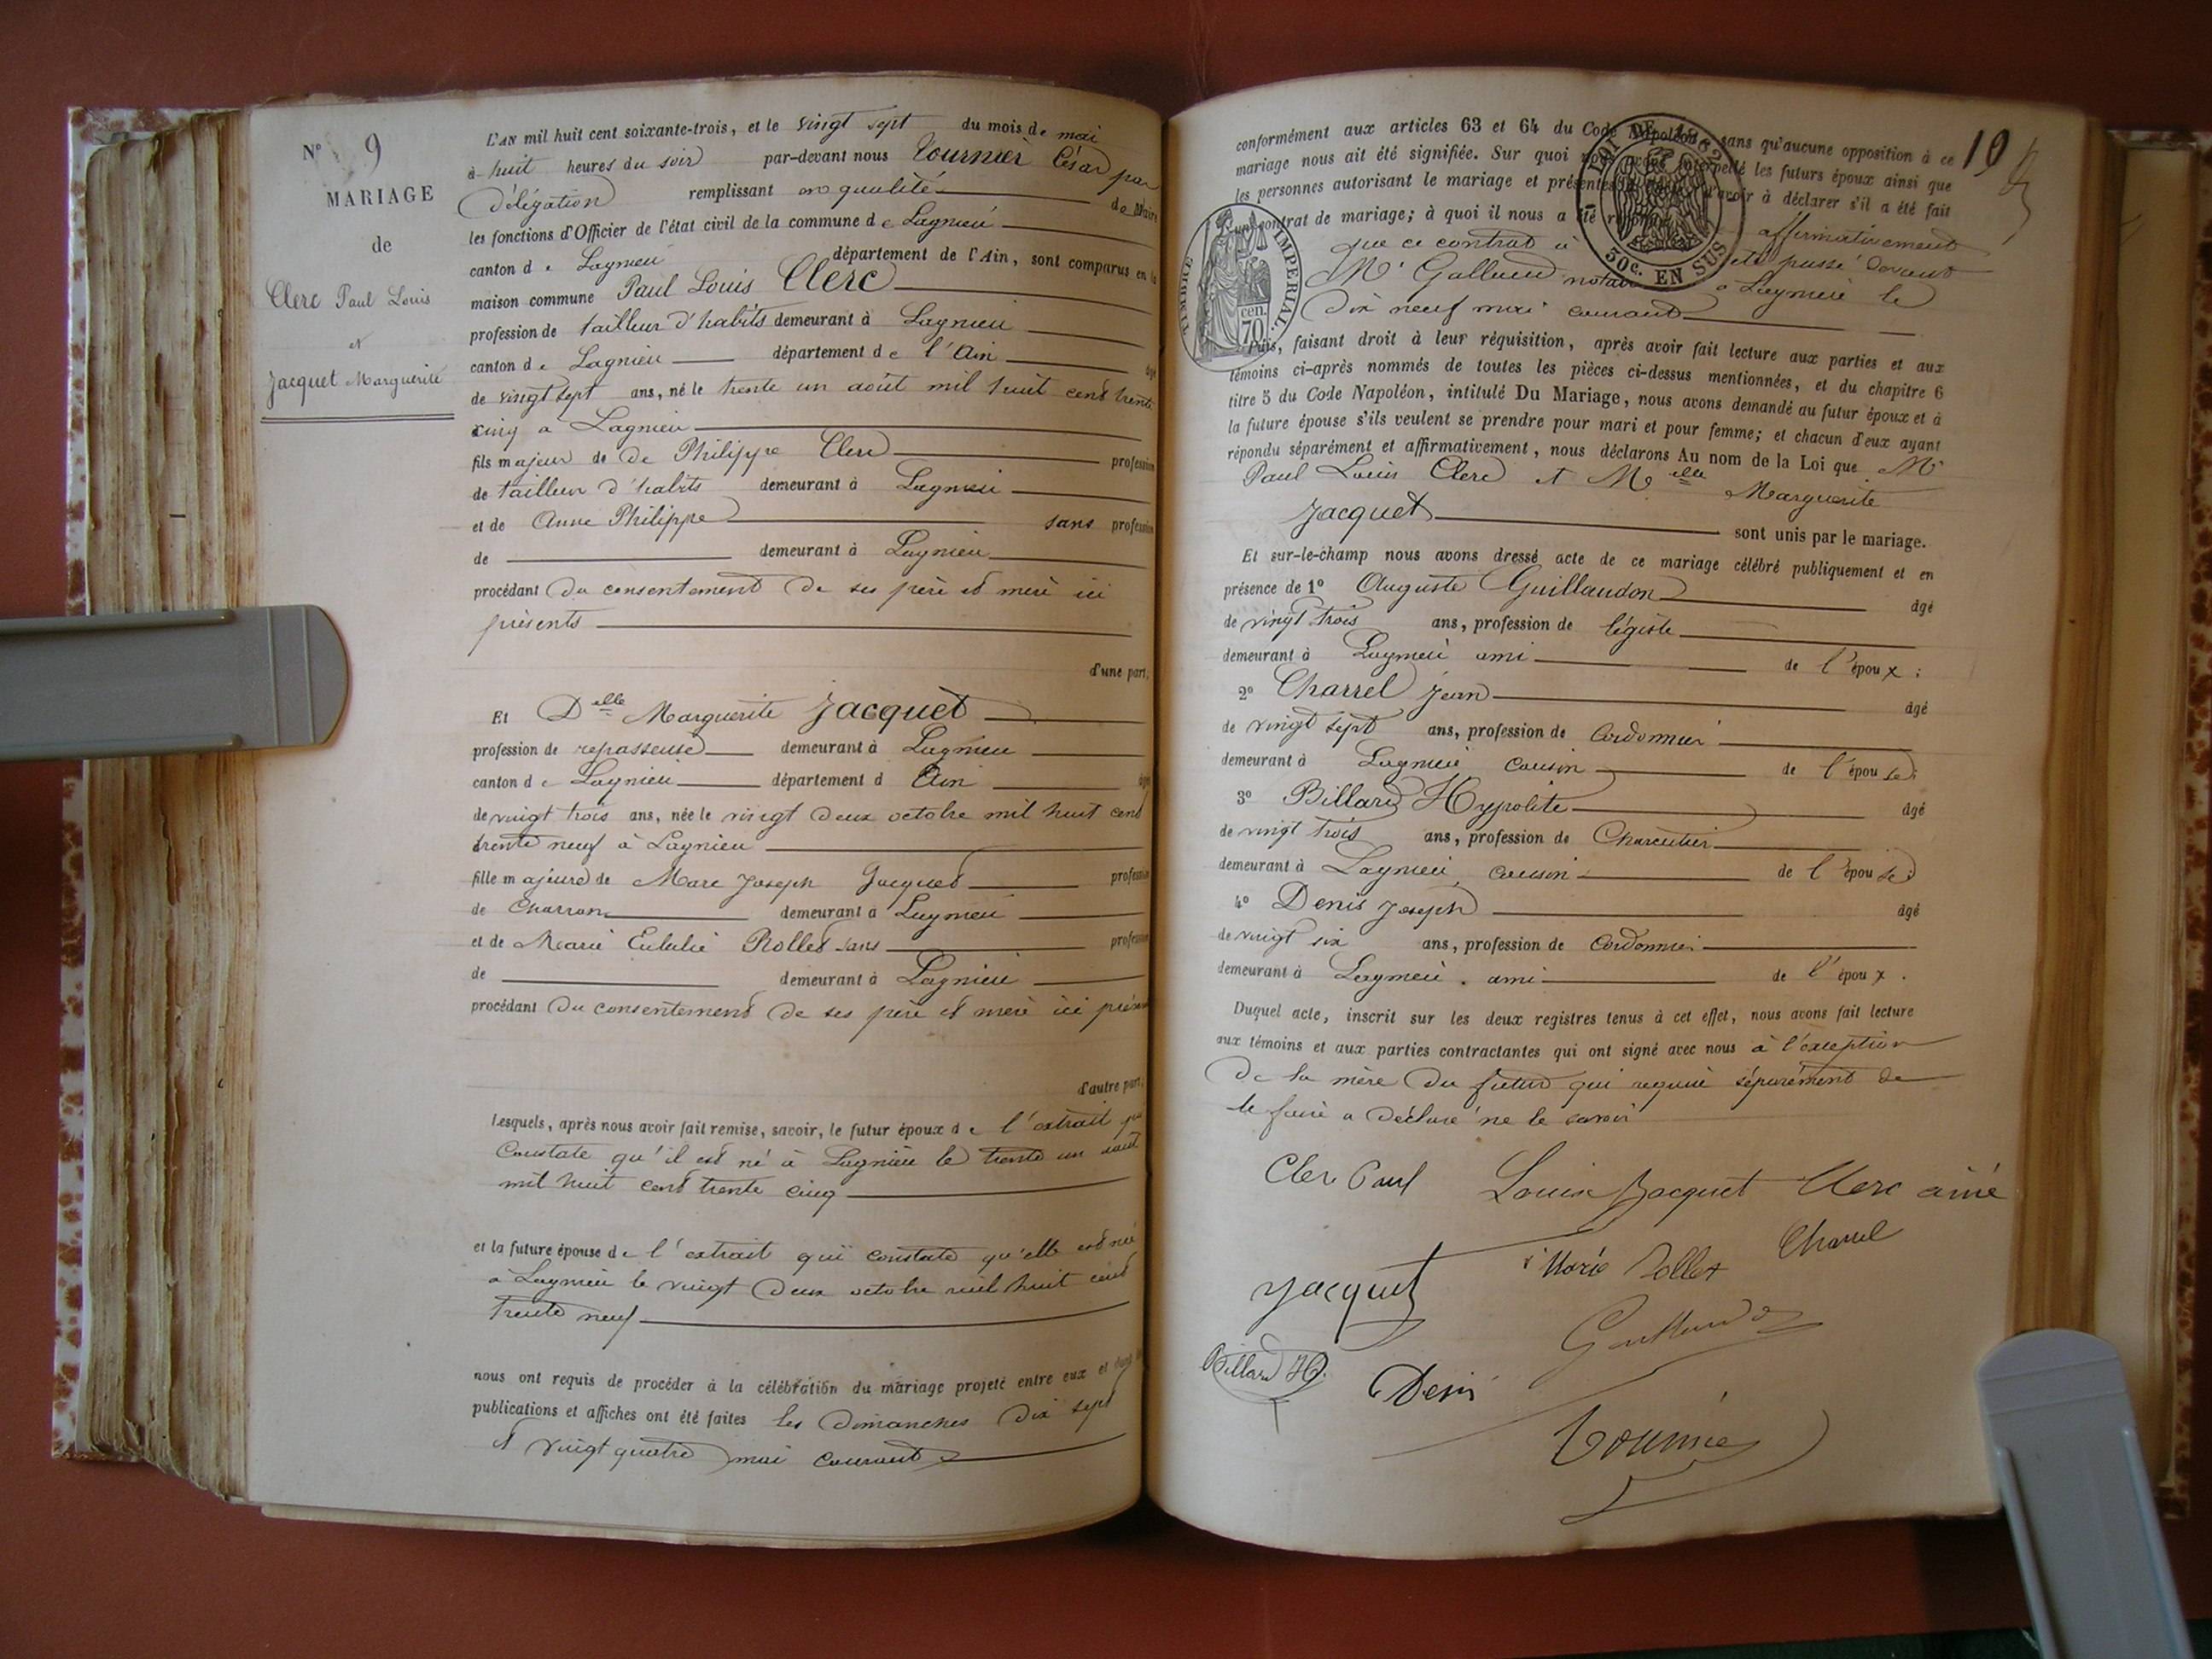 N° 9
MARIAGE
de
Clerc Paul Louis
et
Jacquet Marguerite
L'AN mil huit cent soixante-trois, et le vingt sept du mois de mai
à huit heures du soir par-devant nous Tournier César par
délégation remplissant en qualité de Maire
les fonctions d'Officier de l'état civil de la commune de Lagnieu
canton de Lagnieu département de l'Ain, sont comparus en la
maison commune Paul Louis Clerc
profession de tailleur d'habits demeurant à Lagnieu
canton de Lagnieu département de l'Ain âgé
de vingt sept ans, né le trente un août mil huit cent trente
cinq a Lagnieu
fils majeur de de Philippe Clerc profession
de tailleur d'habits demeurant à Lagnieu
et de Anne Philippe sans profession
de demeurant à Lagnieu
procédant du consentement de ses père et mère ici
présents
d'une part;
Et Delle Marguerite Jacquet
profession de repasseuse demeurant à Lagnieu
canton de Lagnieu département d Ain âgé
de vingt trois ans, née le vingt deux octobre mil huit cent
trente neuf à Lagnieu
fille majeure de Marc Joseph Jacquet profession
de Charron demeurant à Lagnieu
et de Marie Eulalie Rollet sans profession
de demeurant à Lagnieu
procédant du consentement de ses père et mère ici
d'autre part,
Lesquels, après nous avoir fait remise, savoir, le futur époux de l'extrait qui
constate qu'il est né à Lagnieu le trente un août
mil huit cent trente cinq
et la future épouse de l'extrait qui constate qu'elle est née
à Lagnieu le vingt deux octobre mil huit cent
trente neuf
nous ont requis de procéder à la célébration du mariage projeté entre eux et dont les
publications et affiches ont été faites les dimanches dix sept
et vingt quatre mai courant
10
conformément aux articles 63 et 64 du Code Napoléon, sans qu'aucune opposition à ce
mariage nous ait été signifiée. Sur quoi nous avons interpellé les futurs époux ainsi que
les personnes autorisant le mariage et présentes d'avoir à déclarer s'il a été fait
un contrat de mariage; à quoi il nous a été répondu affirmativement
que ce contrat a été passé devant
Me notaire a Lagnieu le
dix neuf mai courant
LOI DE 1862
50c. EN SUS
TIMBRE IMPERIAL.
cen.
70
Puis, faisant droit à leur réquisition, après avoir fait lecture aux parties et aux
témoins ci-après nommés de toutes les pièces ci-dessus mentionnées, et du chapitre 6
titre 5 du Code Napoléon, intitulé Du Mariage, nous avons demandé au futur époux et à
la future épouse s'ils veulent se prendre pour mari et pour femme; et chacun d'eux ayant
répondu séparément et affirmativement, nous déclarons Au nom de la Loi que Mr
Paul Louis Clerc et Melle Marguerite
Jacquet sont unis par le mariage.
Et sur-le-champ nous avons dressé acte de ce mariage célébré publiquement et en
présence de 1° Auguste Guillaudon âgé
de vingt trois ans, profession de légiste
demeurant à Lagnieu ami de l'époux;
2° Charrel Jean âgé
de vingt sept ans, profession de Cordonnier
demeurant à Lagnieu cousin de l'épouse;
3° Billard Hypolite âgé
de vingt trois ans, profession de Charcutier
demeurant à Lagnieu cousin de l'épouse;
4° Denis Joseph âgé
de vingt six ans, profession de Cordonnier
demeurant à Lagnieu. ami de l'époux.
Duquel acte, inscrit sur les deux registres tenus à cet effet, nous avons fait lecture
aux témoins et aux parties contractantes qui ont signé avec nous à l'exception
de la mère du futur qui requise séparément de
le faire a déclaré ne le savoir
Clerc Paul Louis Jacquet Clerc ainé
Jacquet Marie Rollet Charrel
Guillaudon
Billard H. Denis
Tournier